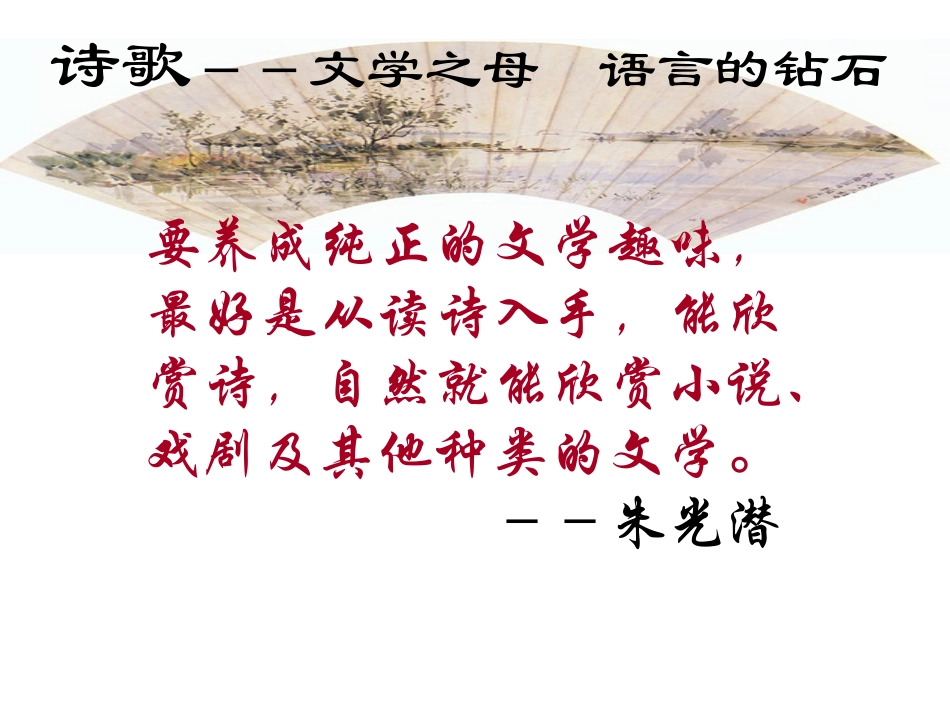 诗歌－－文学之母　语言的钻石
要养成纯正的文学趣味，
最好是从读诗入手，能欣
赏诗，自然就能欣赏小说、
戏剧及其他种类的文学。
－－朱光潜